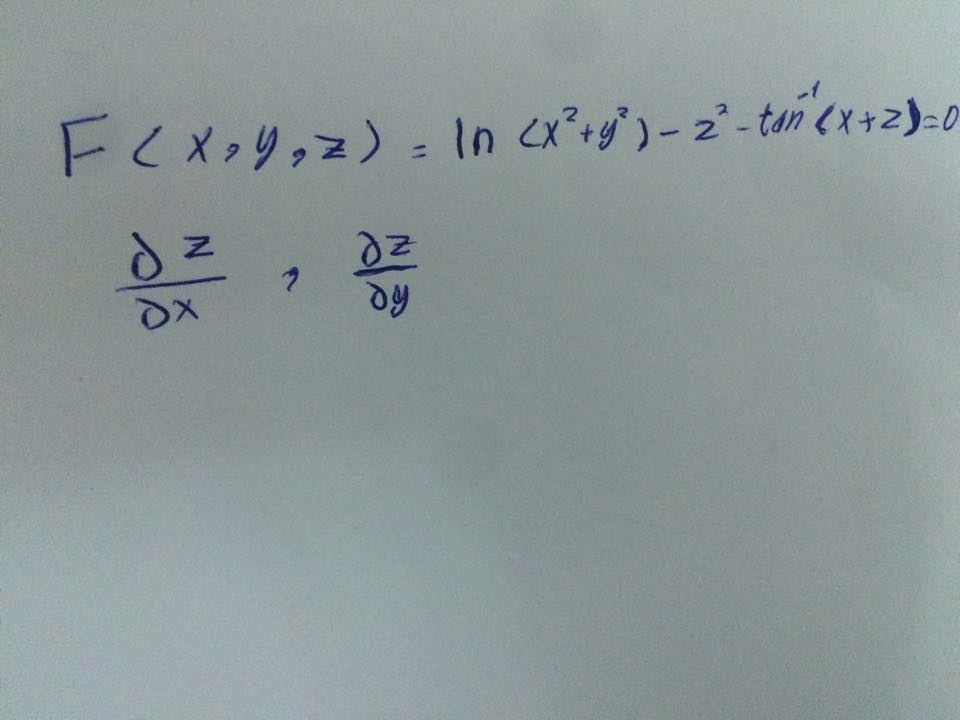 F(x,y,z) = ln (x²+y²) - z² - tan⁻¹(x+z)=0
∂z/∂x , ∂z/∂y